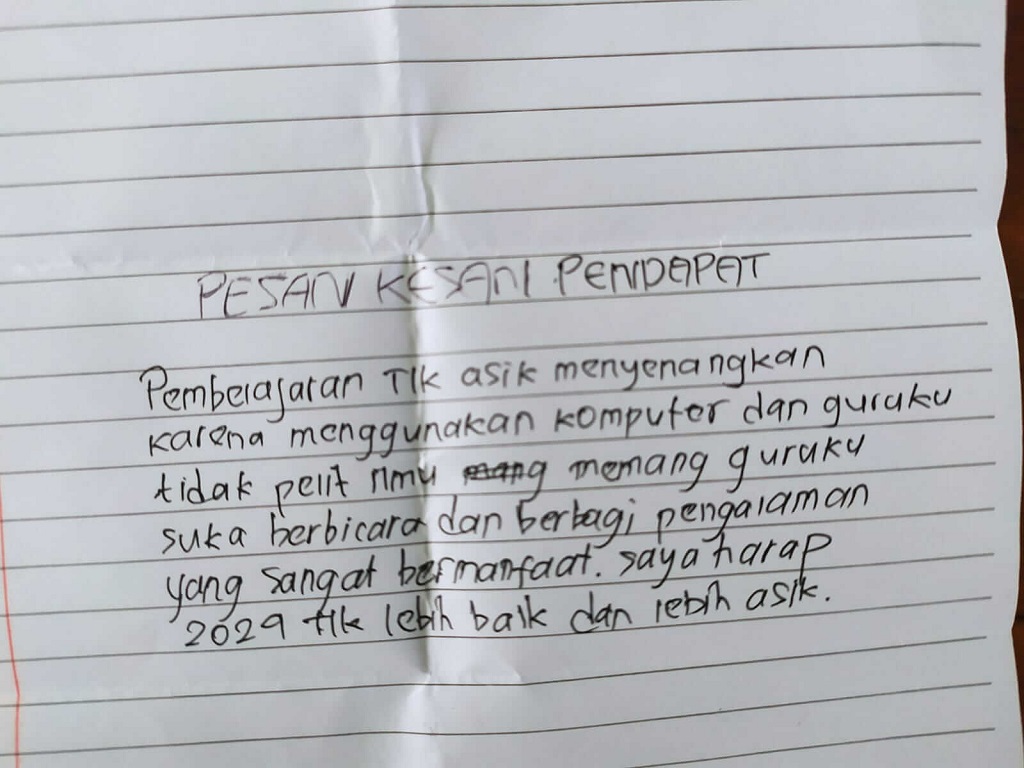 PESAN KESAN PENDAPAT
Pembelajaran TIK asik menyenangkan
karena menggunakan komputer dan guruku
tidak pelit ilmu memang guruku
suka berbicara dan berbagi pengalaman
yang sangat bermanfaat. saya harap
2029 tik lebih baik dan lebih asik.